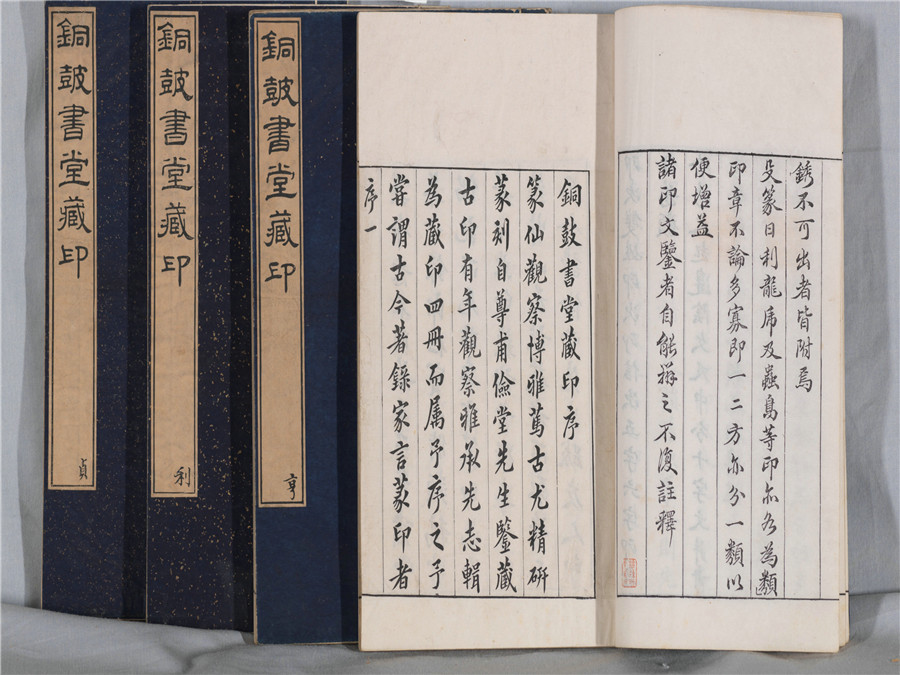 銹不可出者皆附焉
殳篆日利龍虎及蟲鳥等印亦各為類
印章不論多寡即一二方亦分一類以
便增益
諸印文鑒者自能辨之不復註釋
銅鼓書堂藏印序
篆仙觀察博雅篤古尤精研
篆刻自尊甫儉堂先生鑒藏
古印有年觀察雅承先志輯
為藏印四冊而属予序之予
嘗謂古今著錄家言篆印者
序一
銅鼓書堂藏印
亨
銅鼓書堂藏印
利
銅鼓書堂藏印
貞